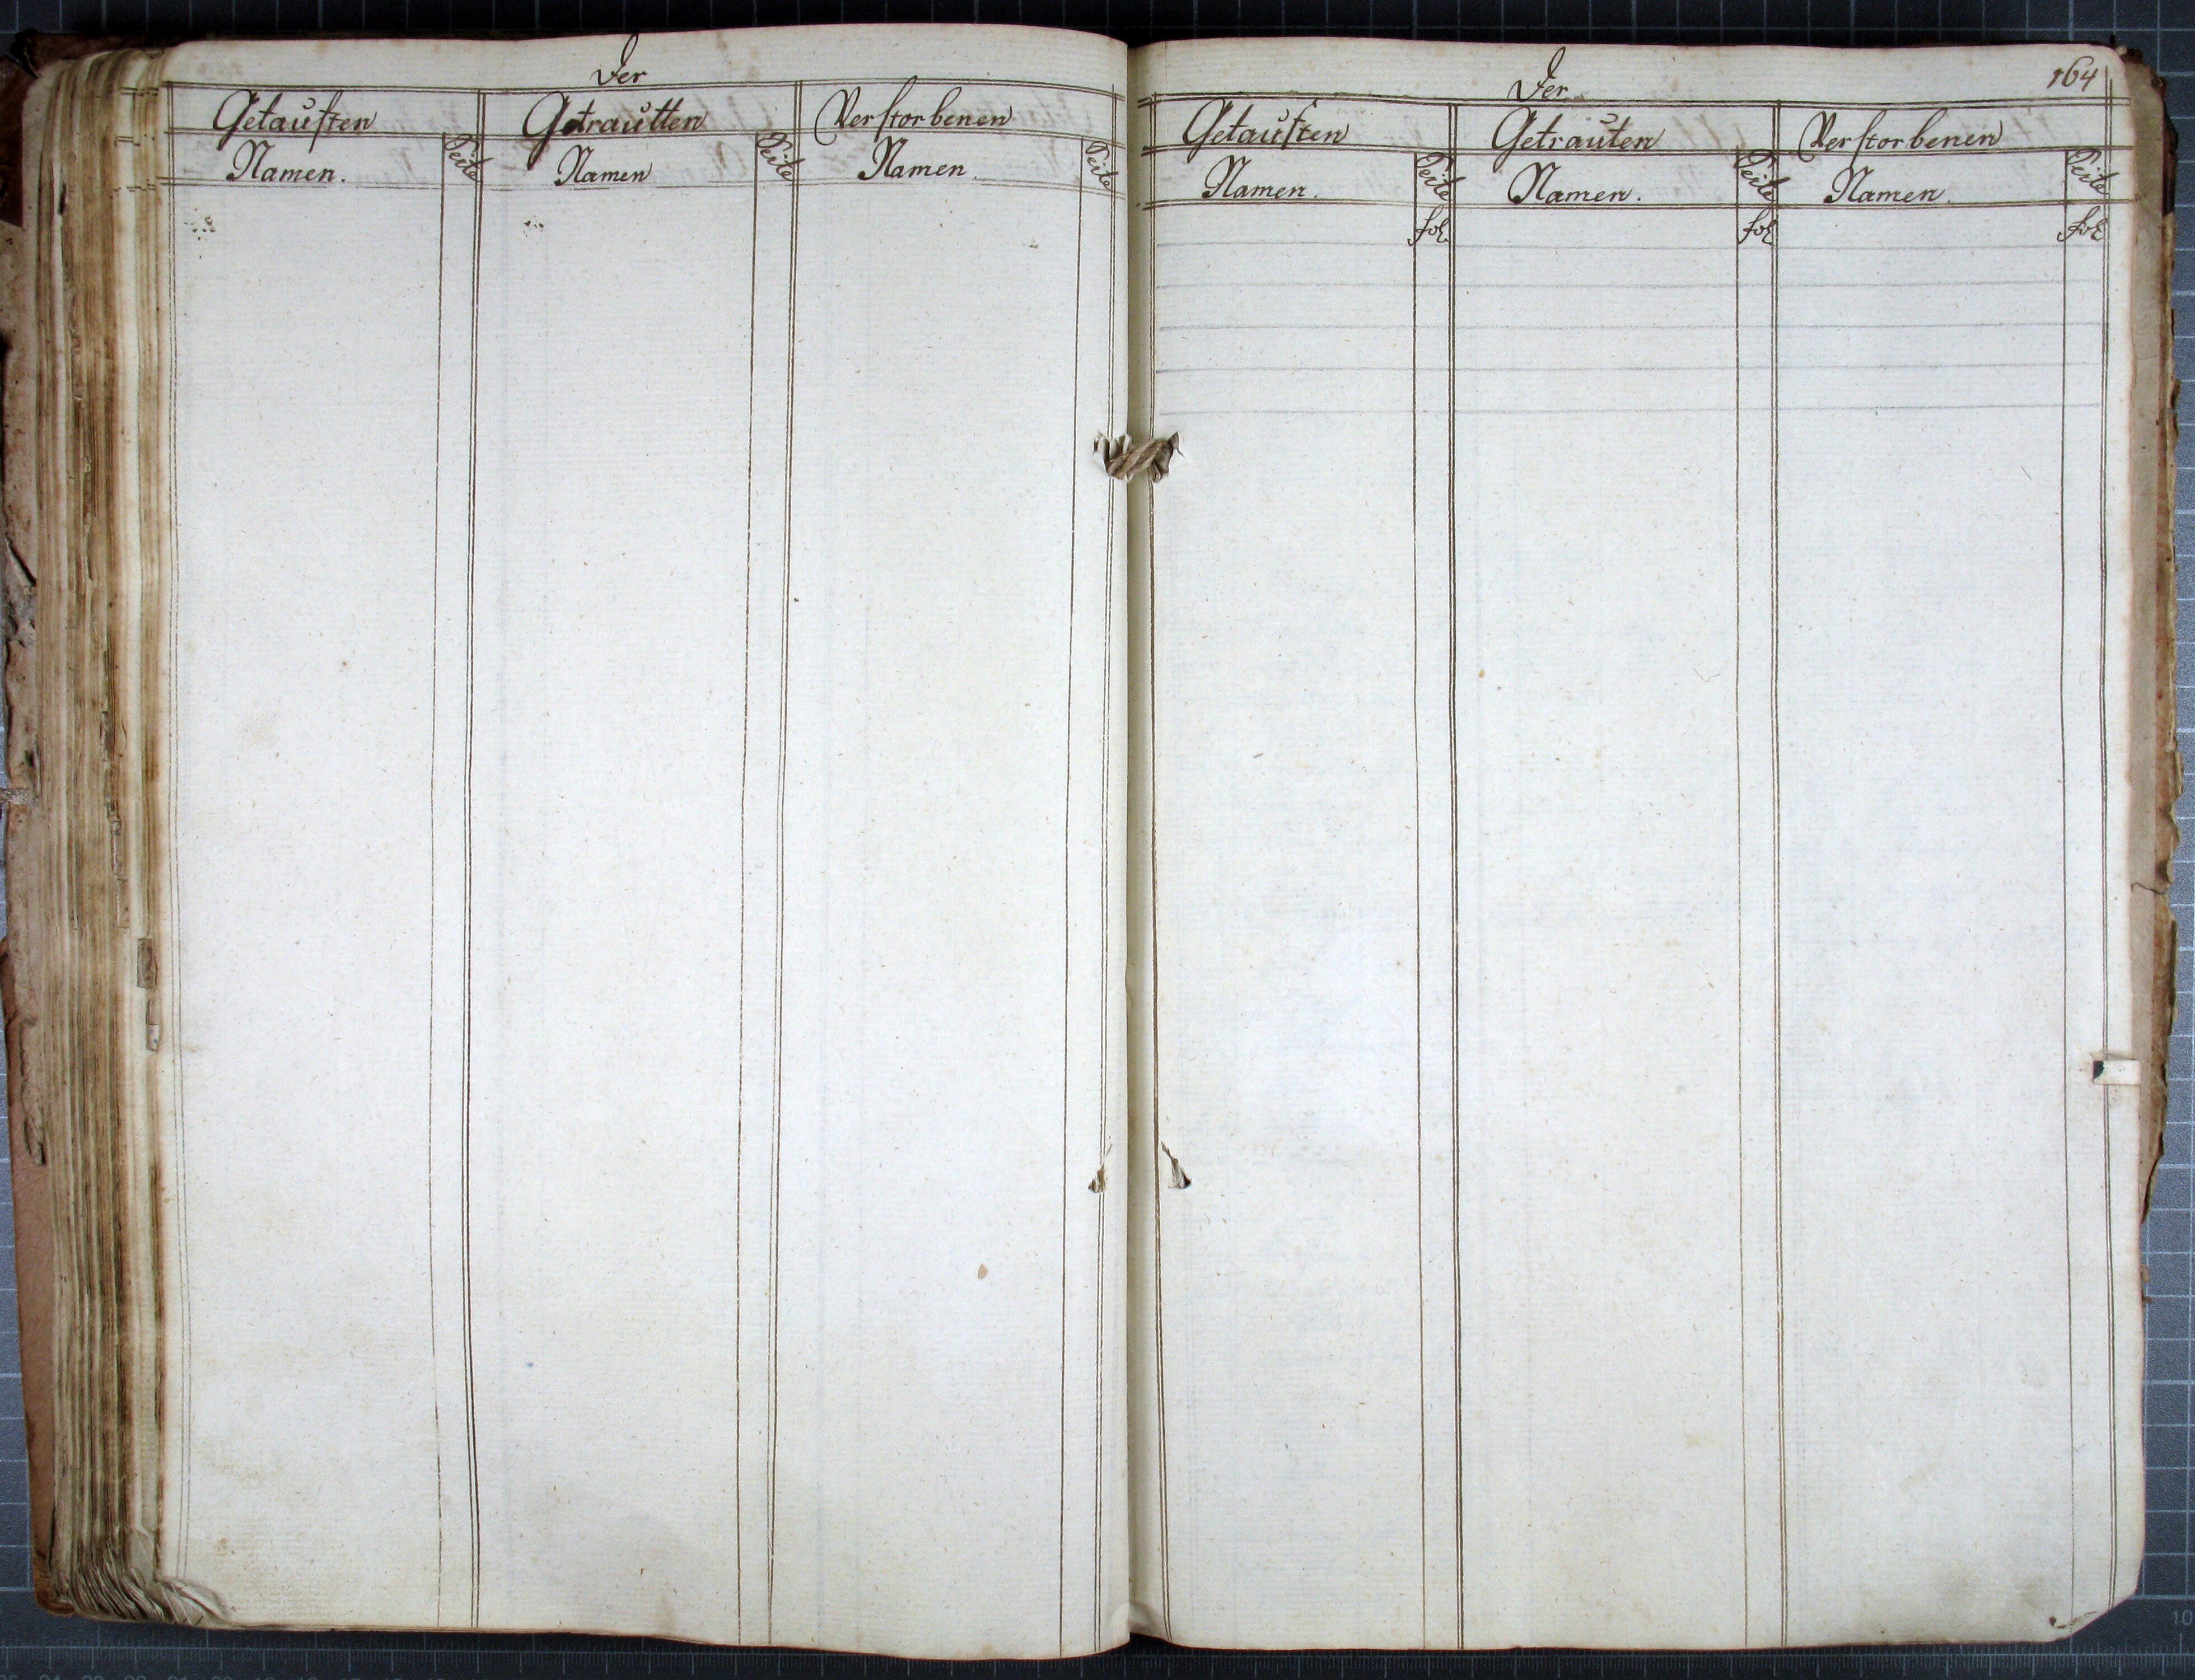 Der
Getauften Getrautten Verstorbenen
Namen. Seite Namen Seite Namen. Seite
164
Der
Getauften Getrauten Verstorbenen
Namen. Seite Namen. Seite Namen. Seite
fol. fol. fol